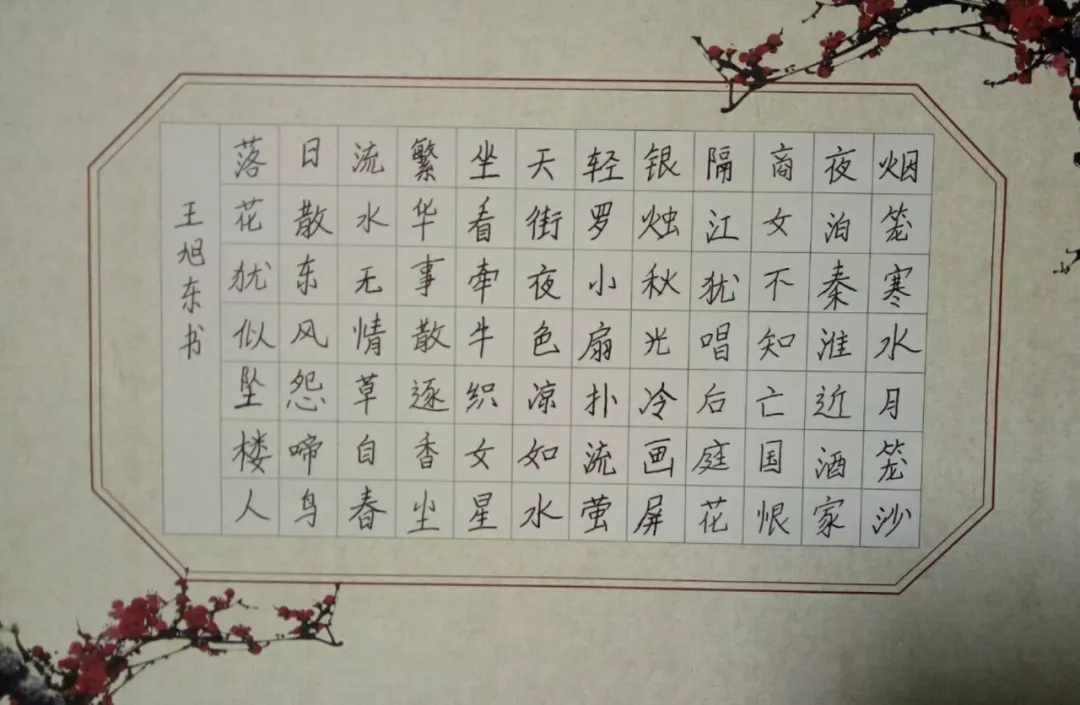 烟笼寒水月笼沙
夜泊秦淮近酒家
商女不知亡国恨
隔江犹唱后庭花
银烛秋光冷画屏
轻罗小扇扑流萤
天街夜色凉如水
坐看牵牛织女星
繁华事散逐香尘
流水无情草自春
日散东风怨啼鸟
落花犹似坠楼人
王旭东书